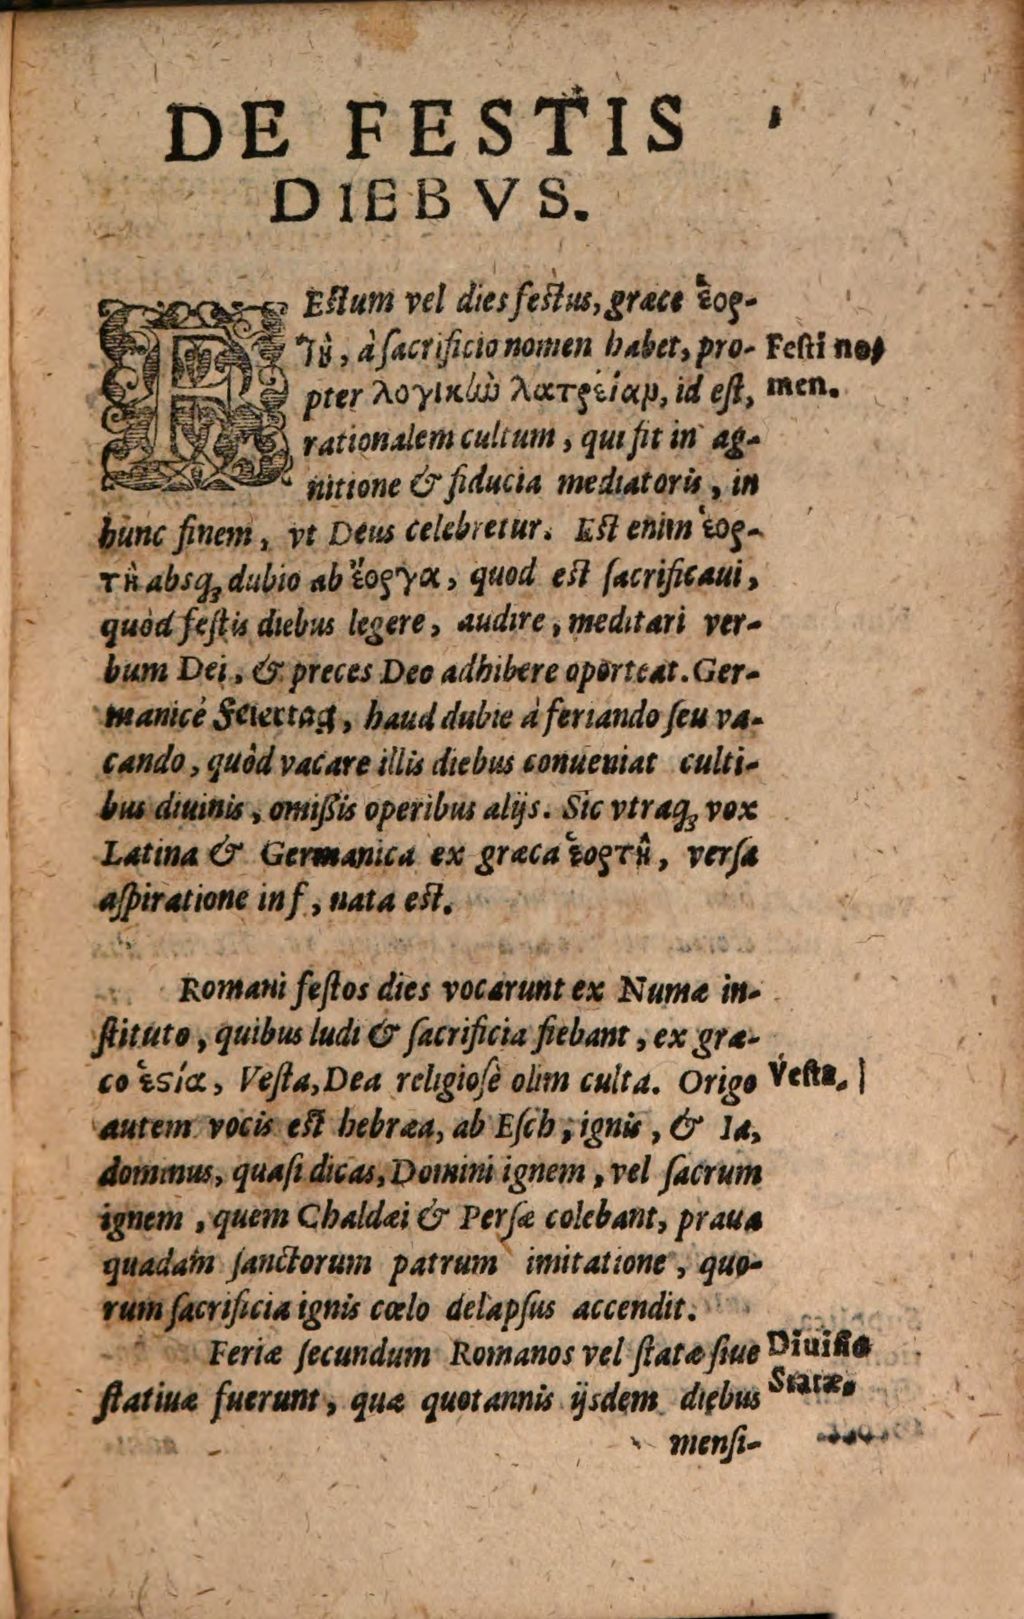 DE FESTIS
DIEBVS.
FEstum vel dies festus, græce ἑορ-
τὴ, à sacrificio nomen habet, pro-
Festi no-
pter λογικὴν λατρείαν, id est,
men.
rationalem cultum, qui fit in ag-
nitione & fiducia mediatoris, in
hunc finem, vt Deus celebretur. Est enim ἑορ-
τὴ absq; dubio ab ἔοργα, quod est sacrificaui,
quòd festis diebus legere, audire, meditari ver-
bum Dei, & preces Deo adhibere oporteat. Ger-
manicè Feiertag, haud dubie à feriando seu va-
cando, quòd vacare illis diebus conueniat culti-
bus diuinis, omißis operibus alijs. Sic vtraq; vox
Latina & Germanica ex græca ἑορτὴ, versa
aspiratione in f, nata est.
Romani festos dies vocarunt ex Numæ in-
stituto, quibus ludi & sacrificia fiebant, ex græ-
co ἑστία, Vesta, Dea religiosè olim culta. Origo
Vesta.
autem vocis est hebræa, ab Esch, ignis, & Ia,
dominus, quasi dicas, Domini ignem, vel sacrum
ignem, quem Chaldæi & Persæ colebant, praua
quadam sanctorum patrum imitatione, quo-
rum sacrificia ignis cœlo delapsus accendit.
Feriæ secundum Romanos vel statæ siue
Diuisio
statiuæ fuerunt, quæ quotannis ijsdem diebus
Statæ.
mensi-